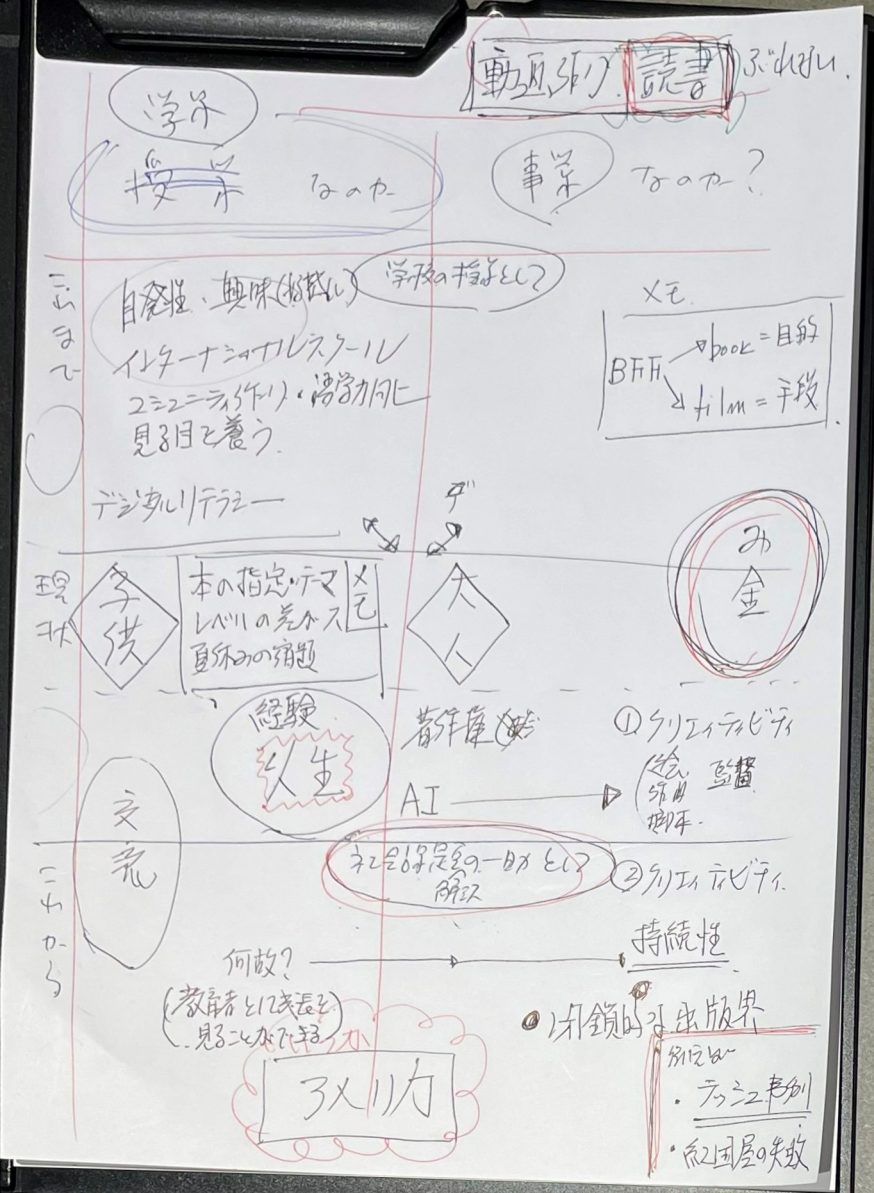 動画作り 読書 ぶれない.
学業
授業 なのか
事業 なのか?
これまで
自発性、興味
学校の
として
インターナショナルスクール
コミュニティ作り・語学力向上
見る目を養う
デジタルリテラシー
メモ
BFF
book=目的
film=手段
お金
現状
子供
本の指定・テーマ
レベルの差が
夏休みの宿題
メモ
大人
経験
人生
著作権
①クリエイティビティ
AI
絵
監督
脚本
交流
これから
社会課題の一助として
解決
②クリエイティビティ
何故?
持続性
(教育者として成長を
見ることができる)
閉鎖的な出版界
アメリカ
例えば
・紀国屋の失敗